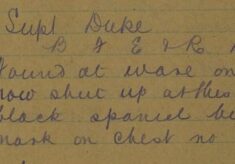 Supt Duke
B J E & R
found at Ware on
now shut up at this
black spaniel
mark on chest no